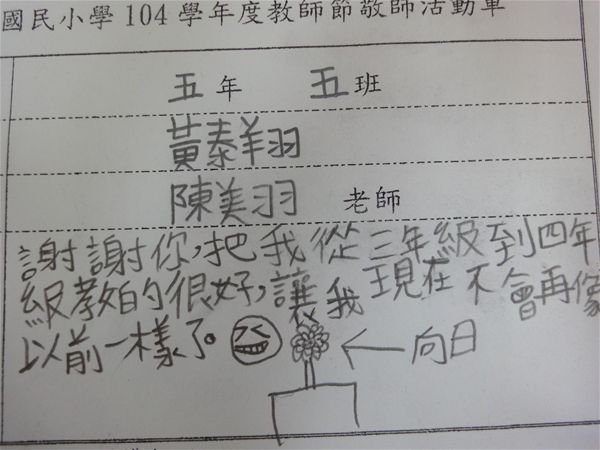 國民小學104學年度教師節敬師活動單
五年 五班
黃泰翔
陳美羽 老師
謝謝你,把我從三年級到四年
級教的很好,讓我現在不會再像
以前一樣了。
向日